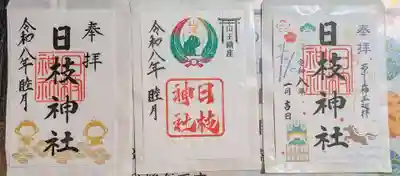 奉拝
日枝神社
令和八年睦月
山王鎮座
令和八年睦月
日枝
神社
奉拝
日枝神社
令和八年
一月吉日